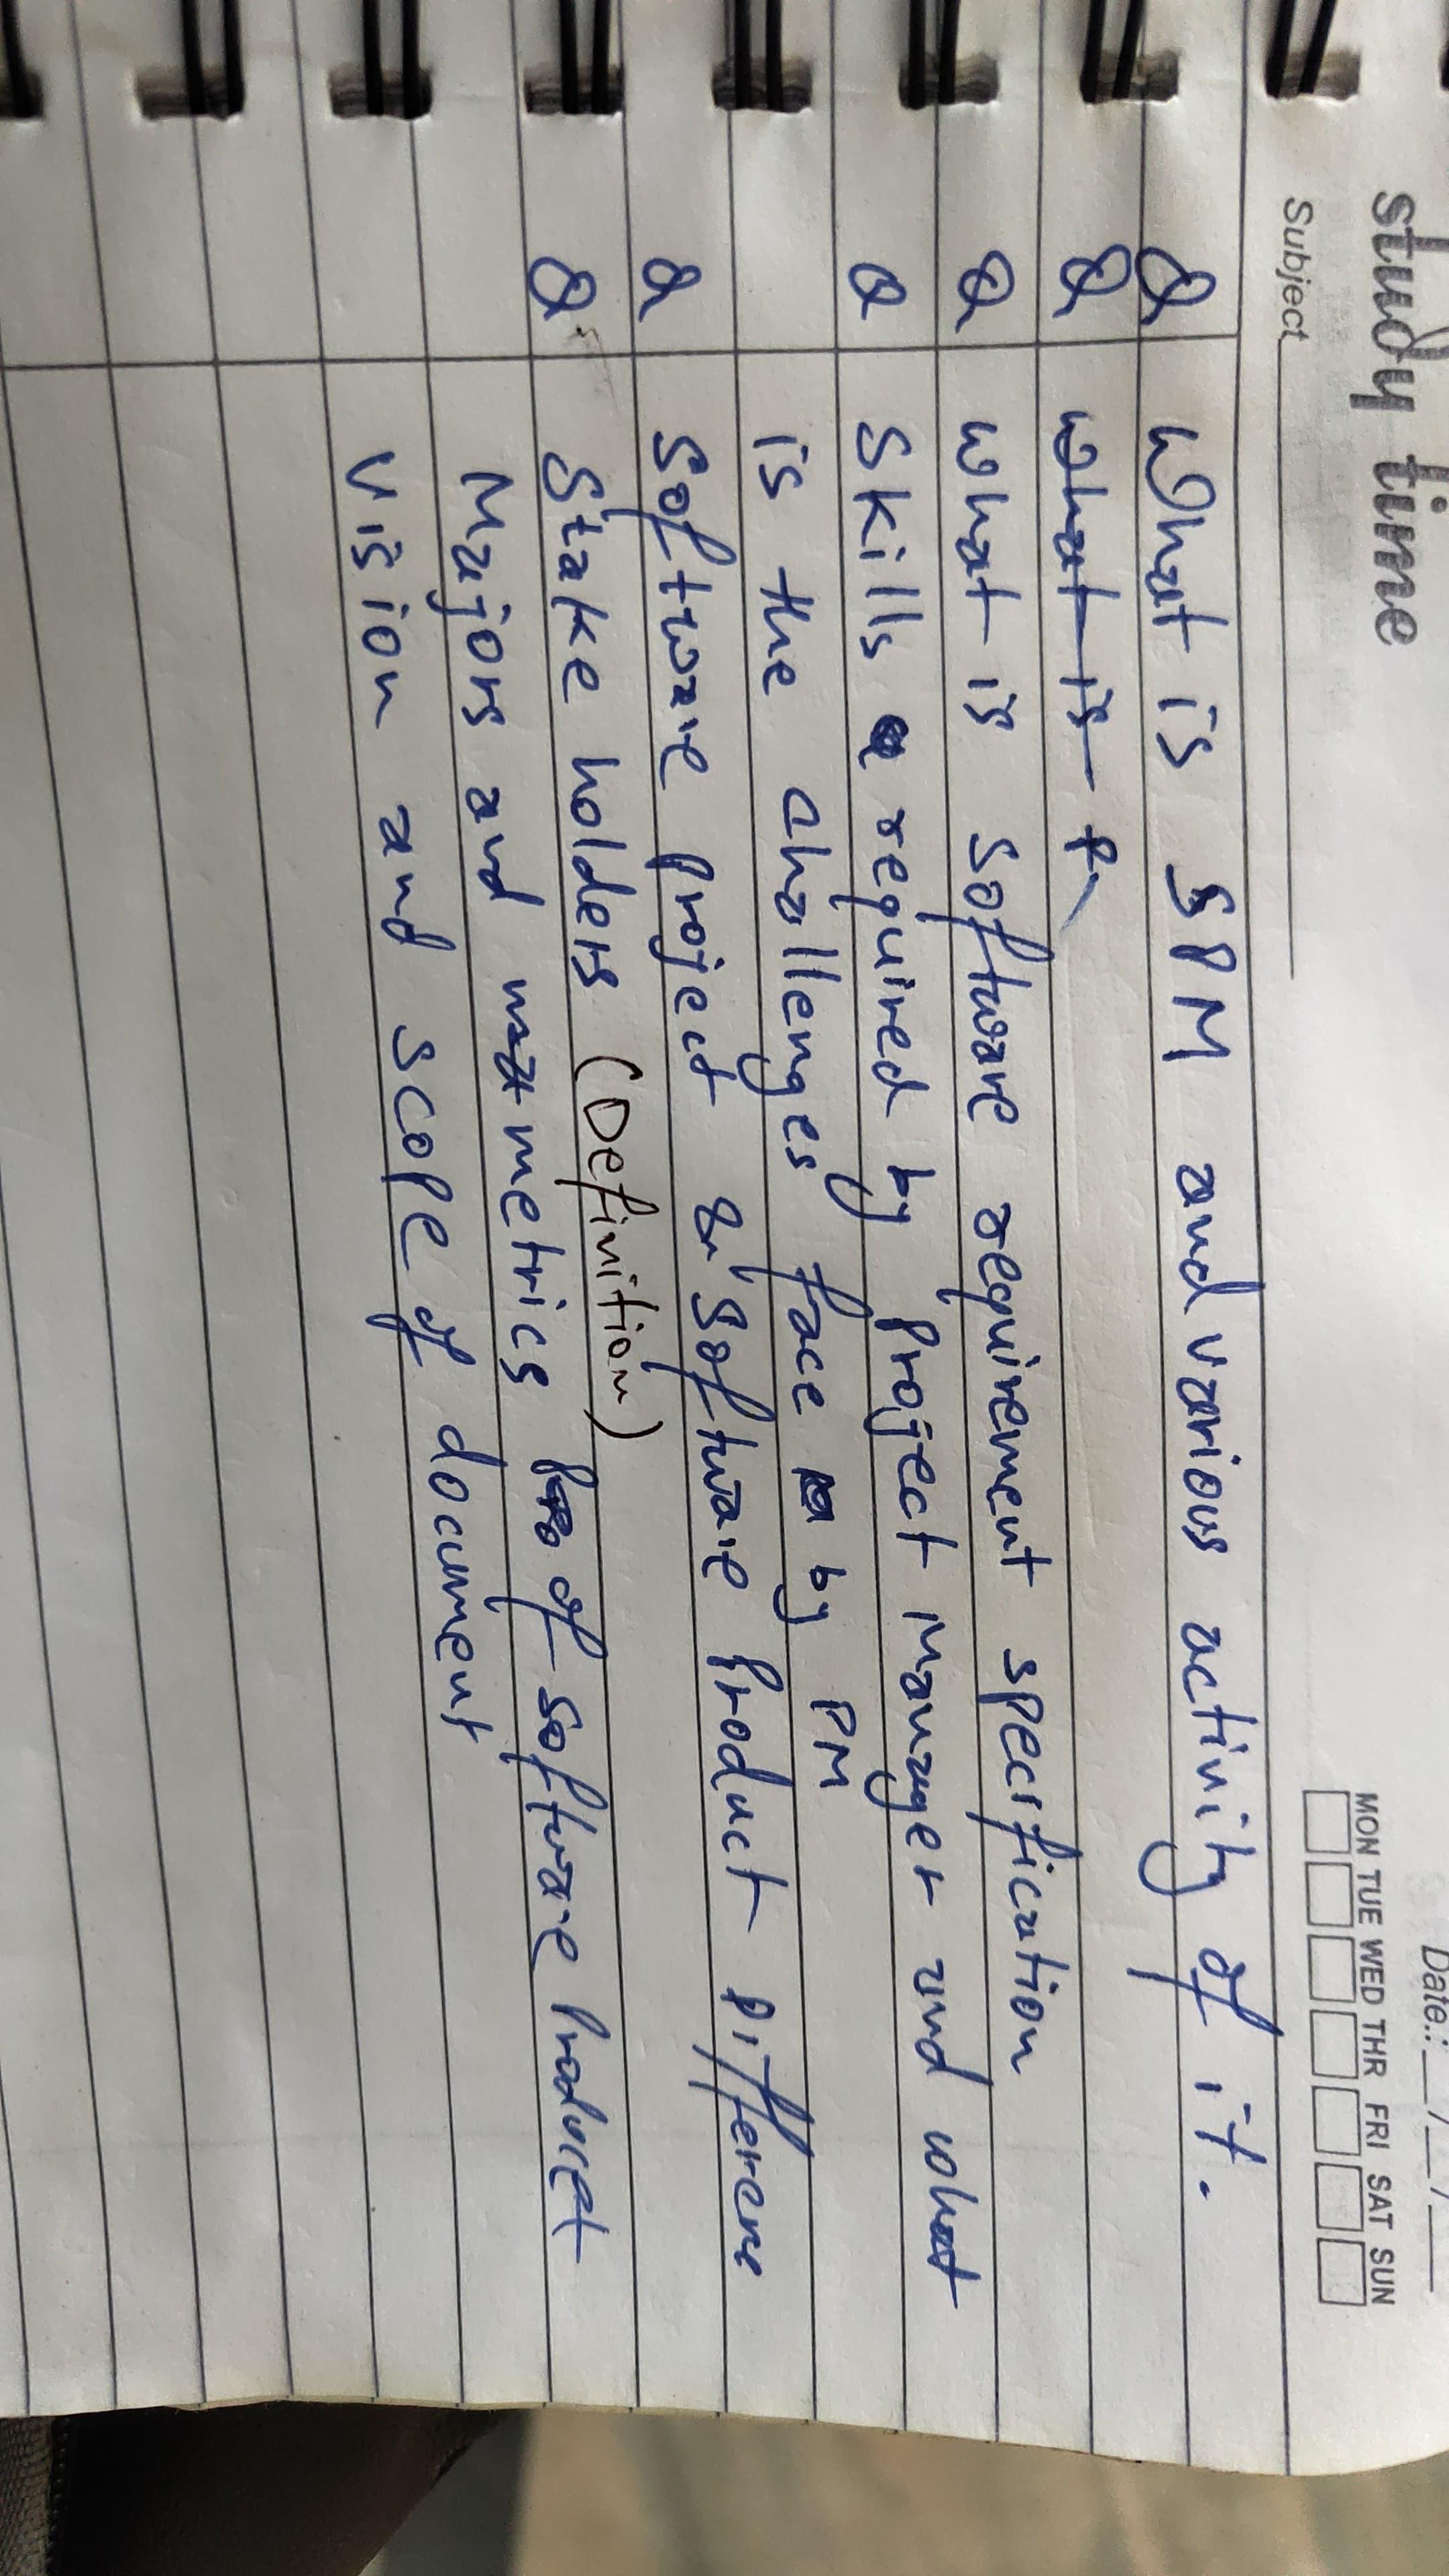 study time
Date.:__/__/__
MON TUE WED THR FRI SAT SUN
Subject
Q What is SPM and various activity of it.
Q what is
Q what is software requirement specification
Q Skills required by project manager and what
is the challenges face by PM
Q Software project & software product Differenc
Q Stake holders (Definition)
Majors and metrics of software product
Vision and scope of document